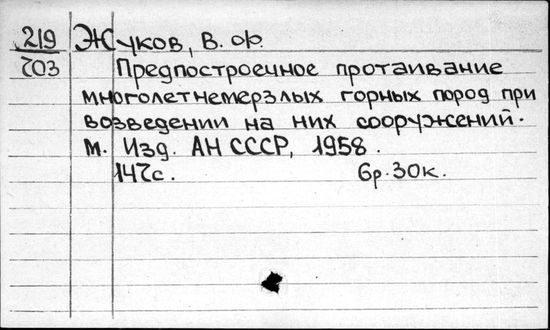 219 Жуков, В. Ф.
203 Предпостроечное протаивание
многолетнемерзлых горных пород при
возведении на них сооружений.
М. Изд. АН СССР, 1958.
147с. 6р. 30к.